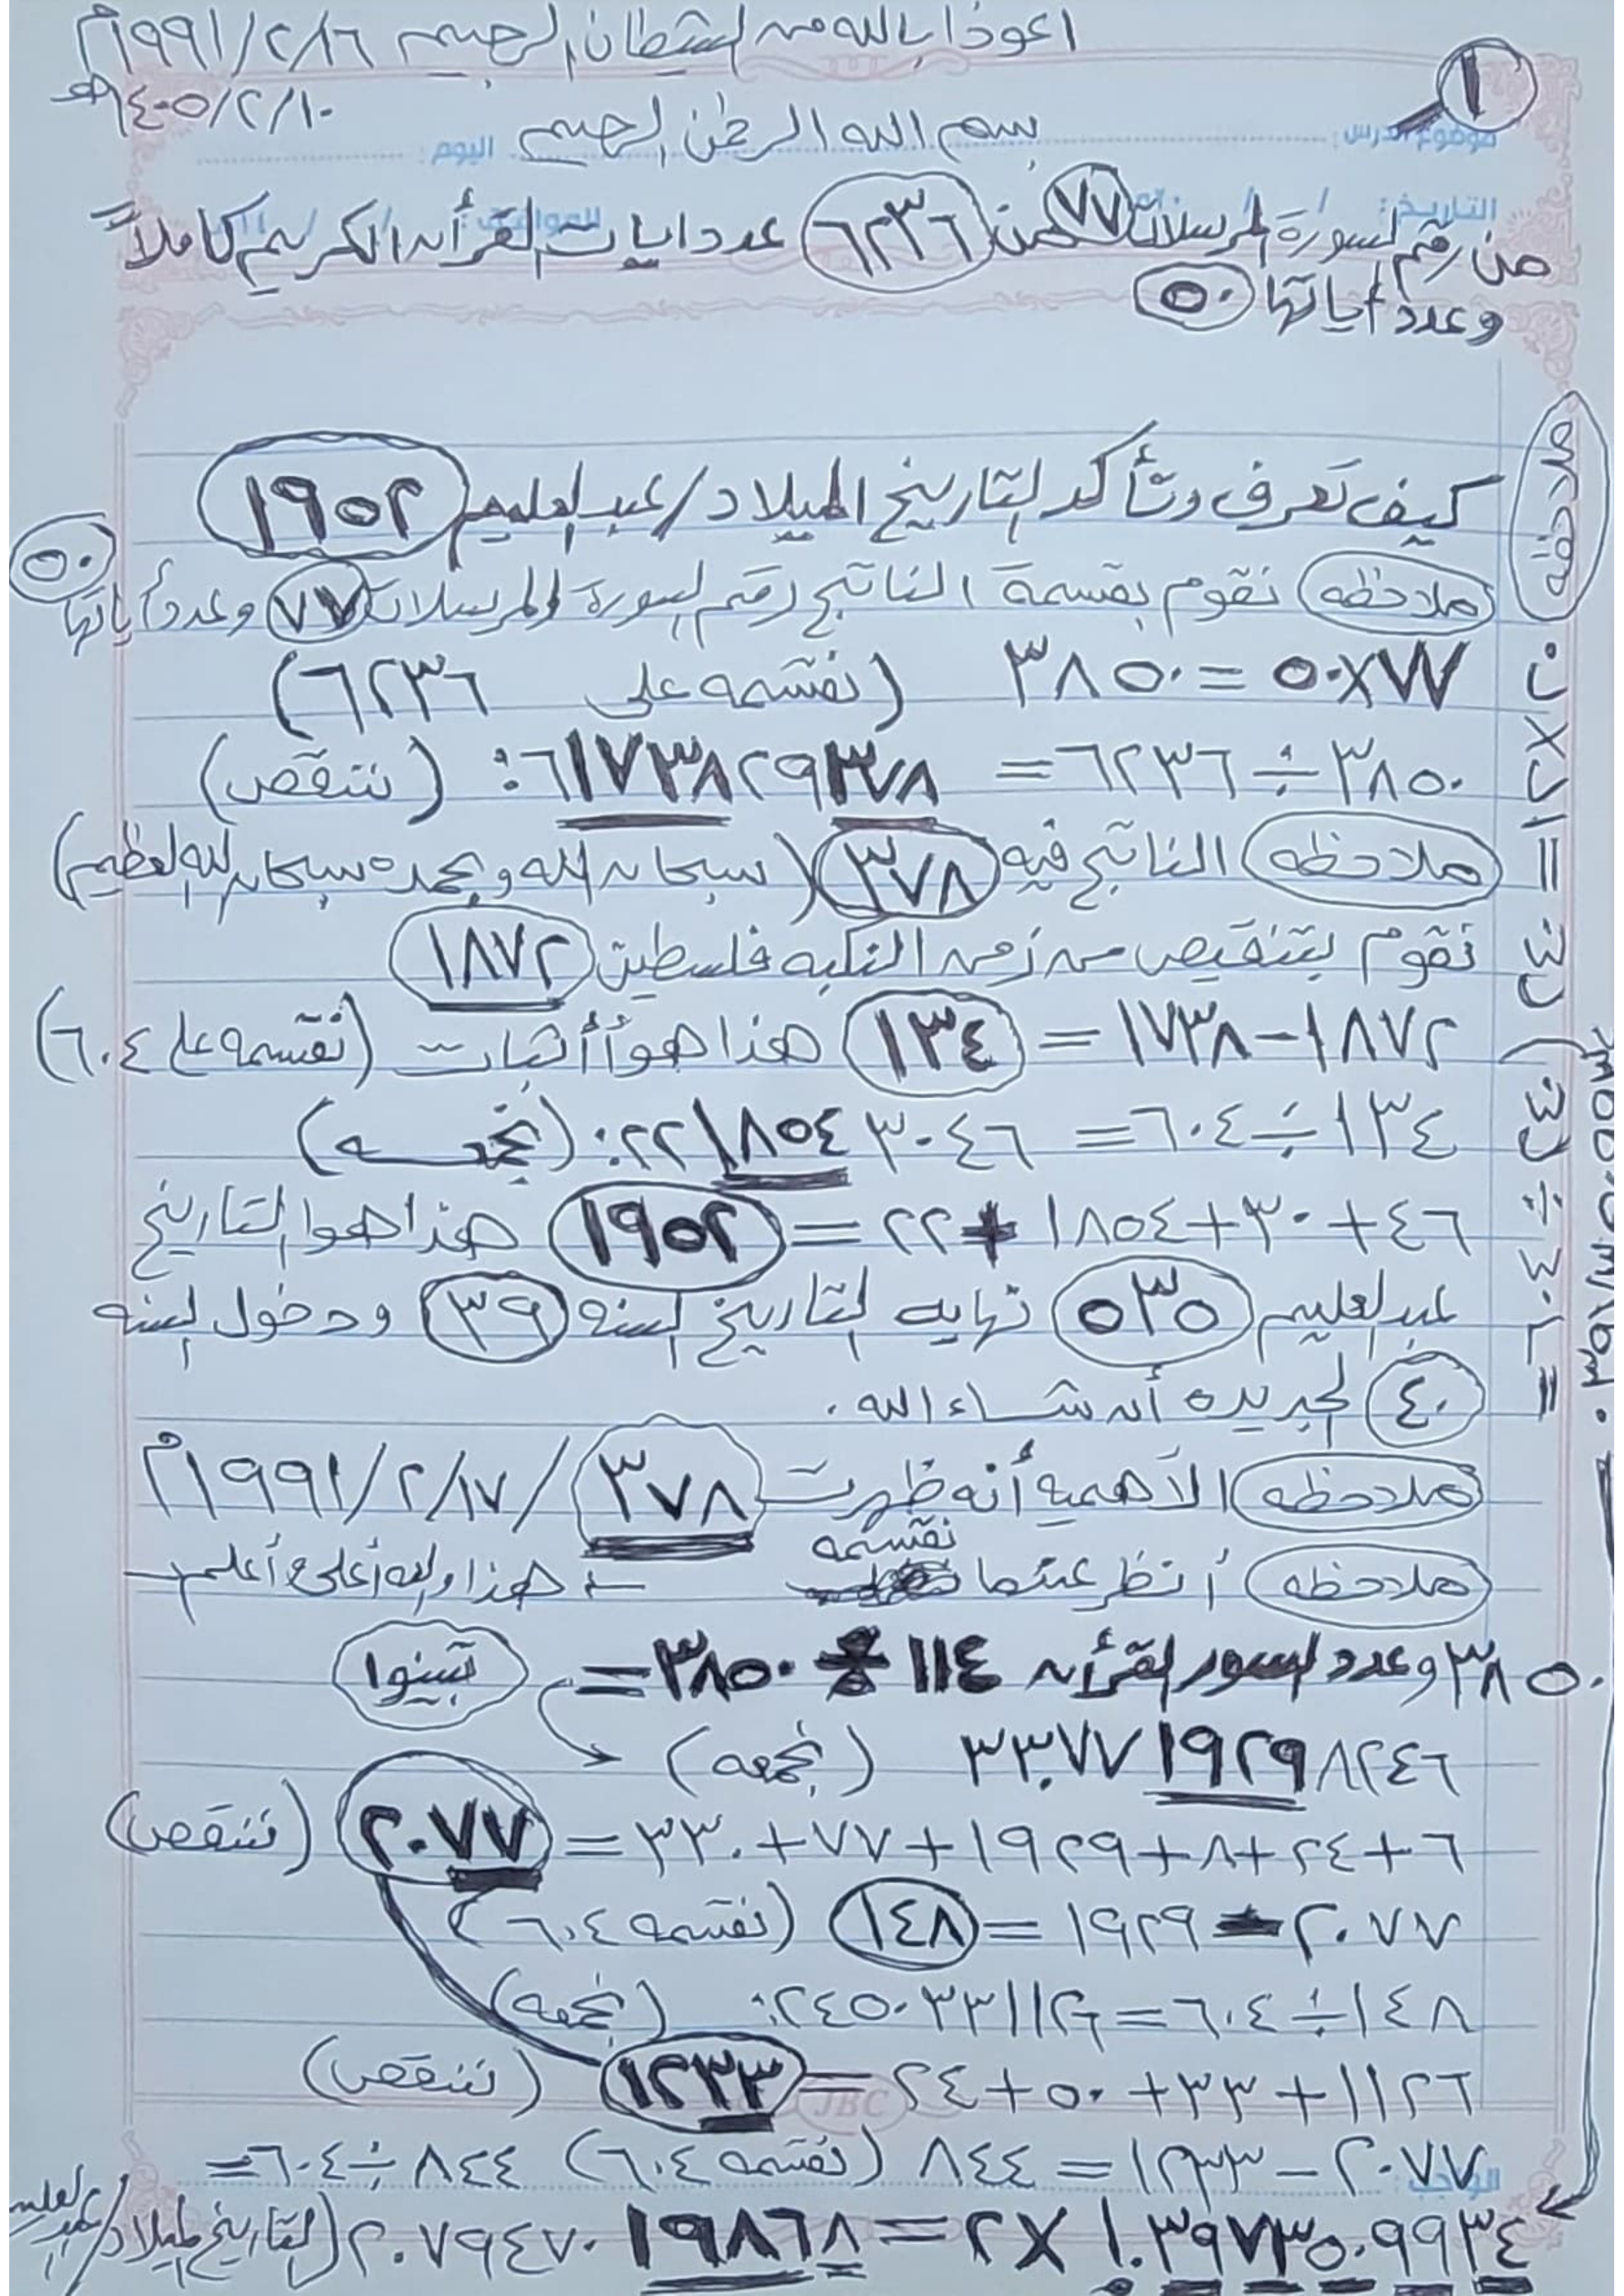 اعوذ بالله من الشيطان الرجيم ١٩٩١/٢/١٦م
١
١٤٠٥/٢/١٠هـ
بسم الله الرحمن الرحيم
موضوع الدرس: اليوم:
التاريخ: / / الموافق: / /
من رقم السورة المرسلات ٧٧ من ٦٢٣٦ عدد ايات القرأن الكريم كاملاً
وعدد أياتها ٥٠
كيف تعرف وتأكد التاريخ الميلاد/عبدالعليم ١٩٥٢
ملاحظه نقوم بقسمة الناتج رقم السورة المرسلات ٧٧ وعدد أياتها ٥٠
٧٧×٥٠=٣٨٥٠ (نقسمه على ٦٢٣٦)
٣٨٥٠÷٦٢٣٦= ٦١٧٣٨٢٩٣٧٨: (ننقص)
ملاحظه الناتج فيه ٣٧٨ (سبحان الله وبحمده سبحان الله العظيم)
نقوم بتنقيص من زمن النكبه فلسطين ١٨٧٢
١٨٧٢-١٧٣٨= ١٣٤ هذا هو أثبات (نقسمه على ٦٠٤)
١٣٤÷٦٠٤= ٢٢١٨٥٤٣٠٤٦: (نجمعه)
٤٦+٣٠+١٨٥٤+٢٢= ١٩٥٢ هذا هو التاريخ
عبدالعليم ٥٣٥ نهايه التاريخ السنه ٣٩ ودخول السنه
٤٠ الجديده أن شاء الله.
ملاحظه الأهميه أنه ظهرت ٣٧٨ /١٩٩١/٢/١٧م
ملاحظه أنظر عندما نقسمه هذا والله أعلى وأعلم
٣٨٥٠ وعدد السور القرأن ١١٤ ÷ ٣٨٥٠ = تبينوا
٣٣٠٧٧١٩٢٩٨٢٤٦ (نجمعه)
٦+٢٤+٨+١٩٢٩+٧٧+٣٣٠= ٢٠٧٧ (ننقص)
٢٠٧٧-١٩٢٩= ١٤٨ (نقسمه ٦٠٤)
١٤٨÷٦٠٤=٢٤٥٠٣٣١١٢٦: (نجمعه)
١١٢٦+٣٣+٥٠+٢٤= ١٢٣٣ (ننقص)
JBC
٢٠٧٧-١٢٣٣=٨٤٤ (نقسمه ٦٠٤) ٨٤٤÷٦٠٤=
الواجب:
١٠٣٩٧٣٥٠٩٩٣٤ ×٢= ٢٠٧٩٤٧٠١٩٨٦٨ (التاريخ الميلاد/عبدالعليم
ملاحظه